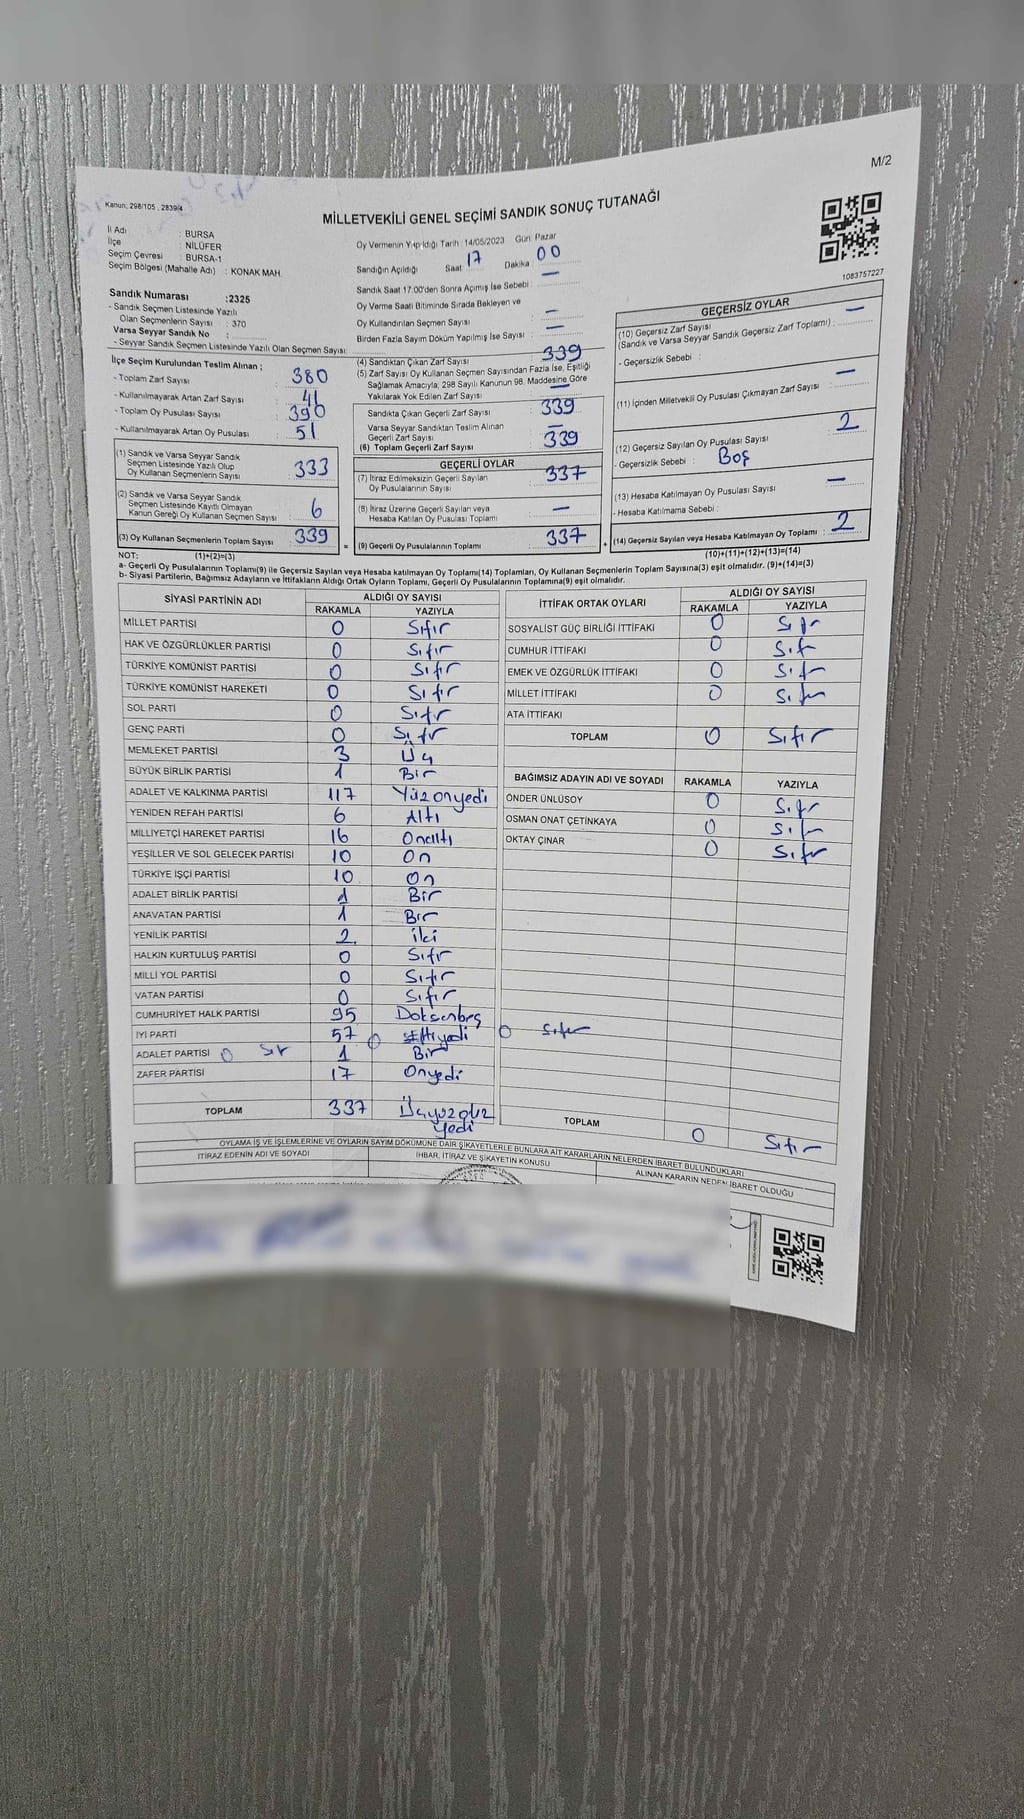 M/2
Kanun; 298/105 , 2839/4
MİLLETVEKİLİ GENEL SEÇİMİ SANDIK SONUÇ TUTANAĞI
İl Adı : BURSA
İlçe : NİLÜFER
Seçim Çevresi : BURSA-1
Seçim Bölgesi (Mahalle Adı) : KONAK MAH.
Oy Vermenin Yapıldığı Tarih : 14/05/2023 Gün: Pazar
Sandığın Açıldığı Saat 17 Dakika 00
Sandık Saat 17.00'den Sonra Açımış İse Sebebi : —
Oy Verme Saati Bitiminde Sırada Bekleyen ve
Oy Kullandırılan Seçmen Sayısı —
Birden Fazla Sayım Döküm Yapılmış İse Sayısı : —
1083757227
Sandık Numarası :2325
- Sandık Seçmen Listesinde Yazılı
Olan Seçmenlerin Sayısı : 370
Varsa Seyyar Sandık No :
- Seyyar Sandık Seçmen Listesinde Yazılı Olan Seçmen Sayısı:
İlçe Seçim Kurulundan Teslim Alınan ;
- Toplam Zarf Sayısı 380
- Kullanılmayarak Artan Zarf Sayısı 41
- Toplam Oy Pusulası Sayısı 390
- Kullanılmayarak Artan Oy Pusulası 51
(1) Sandık ve Varsa Seyyar Sandık
Seçmen Listesinde Yazılı Olup
Oy Kullanan Seçmenlerin Sayısı 333
(2) Sandık ve Varsa Seyyar Sandık
Seçmen Listesinde Kayıtlı Olmayan
Kanun Gereği Oy Kullanan Seçmen Sayısı 6
(3) Oy Kullanan Seçmenlerin Toplam Sayısı 339
(4) Sandıktan Çıkan Zarf Sayısı 339
(5) Zarf Sayısı Oy Kullanan Seçmen Sayısından Fazla İse, Eşitliği
Sağlamak Amacıyla; 298 Sayılı Kanunun 98. Maddesine Göre
Yakılarak Yok Edilen Zarf Sayısı —
Sandıkta Çıkan Geçerli Zarf Sayısı 339
Varsa Seyyar Sandıktan Teslim Alınan
Geçerli Zarf Sayısı —
(6) Toplam Geçerli Zarf Sayısı 339
GEÇERLİ OYLAR
(7) İtiraz Edilmeksizin Geçerli Sayılan
Oy Pusulalarının Sayısı 337
(8) İtiraz Üzerine Geçerli Sayılan veya
Hesaba Katılan Oy Pusulası Toplamı —
= (9) Geçerli Oy Pusulalarının Toplamı 337
GEÇERSİZ OYLAR
(10) Geçersiz Zarf Sayısı
(Sandık ve Varsa Seyyar Sandık Geçersiz Zarf Toplamı) : —
- Geçersizlik Sebebi :
(11) İçinden Milletvekili Oy Pusulası Çıkmayan Zarf Sayısı —
(12) Geçersiz Sayılan Oy Pusulası Sayısı 2
- Geçersizlik Sebebi : Boş
(13) Hesaba Katılmayan Oy Pusulası Sayısı —
- Hesaba Katılmama Sebebi :
+ (14) Geçersiz Sayılan veya Hesaba Katılmayan Oy Toplamı : 2
NOT: (1)+(2)=(3) (10)+(11)+(12)+(13)=(14)
a- Geçerli Oy Pusulalarının Toplamı(9) ile Geçersiz Sayılan veya Hesaba katılmayan Oy Toplamı(14) Toplamları, Oy Kullanan Seçmenlerin Toplam Sayısına(3) eşit olmalıdır. (9)+(14)=(3)
b- Siyasi Partilerin, Bağımsız Adayların ve İttifakların Aldığı Ortak Oyların Toplamı, Geçerli Oy Pusulalarının Toplamına(9) eşit olmalıdır.
SİYASİ PARTİNİN ADI ALDIĞI OY SAYISI
RAKAMLA YAZIYLA
MİLLET PARTİSİ 0 Sıfır
HAK VE ÖZGÜRLÜKLER PARTİSİ 0 Sıfır
TÜRKİYE KOMÜNİST PARTİSİ 0 Sıfır
TÜRKİYE KOMÜNİST HAREKETİ 0 Sıfır
SOL PARTİ 0 Sıfır
GENÇ PARTİ 0 Sıfır
MEMLEKET PARTİSİ 3 Üç
BÜYÜK BİRLİK PARTİSİ 1 Bir
ADALET VE KALKINMA PARTİSİ 117 Yüzonyedi
YENİDEN REFAH PARTİSİ 6 Altı
MİLLİYETÇİ HAREKET PARTİSİ 16 Onaltı
YEŞİLLER VE SOL GELECEK PARTİSİ 10 On
TÜRKİYE İŞÇİ PARTİSİ 10 On
ADALET BİRLİK PARTİSİ 1 Bir
ANAVATAN PARTİSİ 1 Bir
YENİLİK PARTİSİ 2 iki
HALKIN KURTULUŞ PARTİSİ 0 Sıfır
MİLLİ YOL PARTİSİ 0 Sıfır
VATAN PARTİSİ 0 Sıfır
CUMHURİYET HALK PARTİSİ 95 Doksanbeş
İYİ PARTİ 57 Elliyedi
0 0 Sıfır
ADALET PARTİSİ 0 Sıfır 1 Bir
ZAFER PARTİSİ 17 Onyedi
TOPLAM 337 Üçyüzotuz
yedi
İTTİFAK ORTAK OYLARI ALDIĞI OY SAYISI
RAKAMLA YAZIYLA
SOSYALİST GÜÇ BİRLİĞİ İTTİFAKI 0 Sıfır
CUMHUR İTTİFAKI 0 Sıfır
EMEK VE ÖZGÜRLÜK İTTİFAKI 0 Sıfır
MİLLET İTTİFAKI 0 Sıfır
ATA İTTİFAKI
TOPLAM 0 Sıfır
BAĞIMSIZ ADAYIN ADI VE SOYADI RAKAMLA YAZIYLA
ÖNDER ÜNLÜSOY 0 Sıfır
OSMAN ONAT ÇETİNKAYA 0 Sıfır
OKTAY ÇINAR 0 Sıfır
TOPLAM 0 Sıfır
OYLAMA İŞ VE İŞLEMLERİNE VE OYLARIN SAYIM DÖKÜMÜNE DAİR ŞİKAYETLERLE BUNLARA AİT KARARLARIN NELERDEN İBARET BULUNDUKLARI
İTİRAZ EDENİN ADI VE SOYADI İHBAR, İTİRAZ VE ŞİKAYETİN KONUSU ALINAN KARARIN NEDEN İBARET OLDUĞU